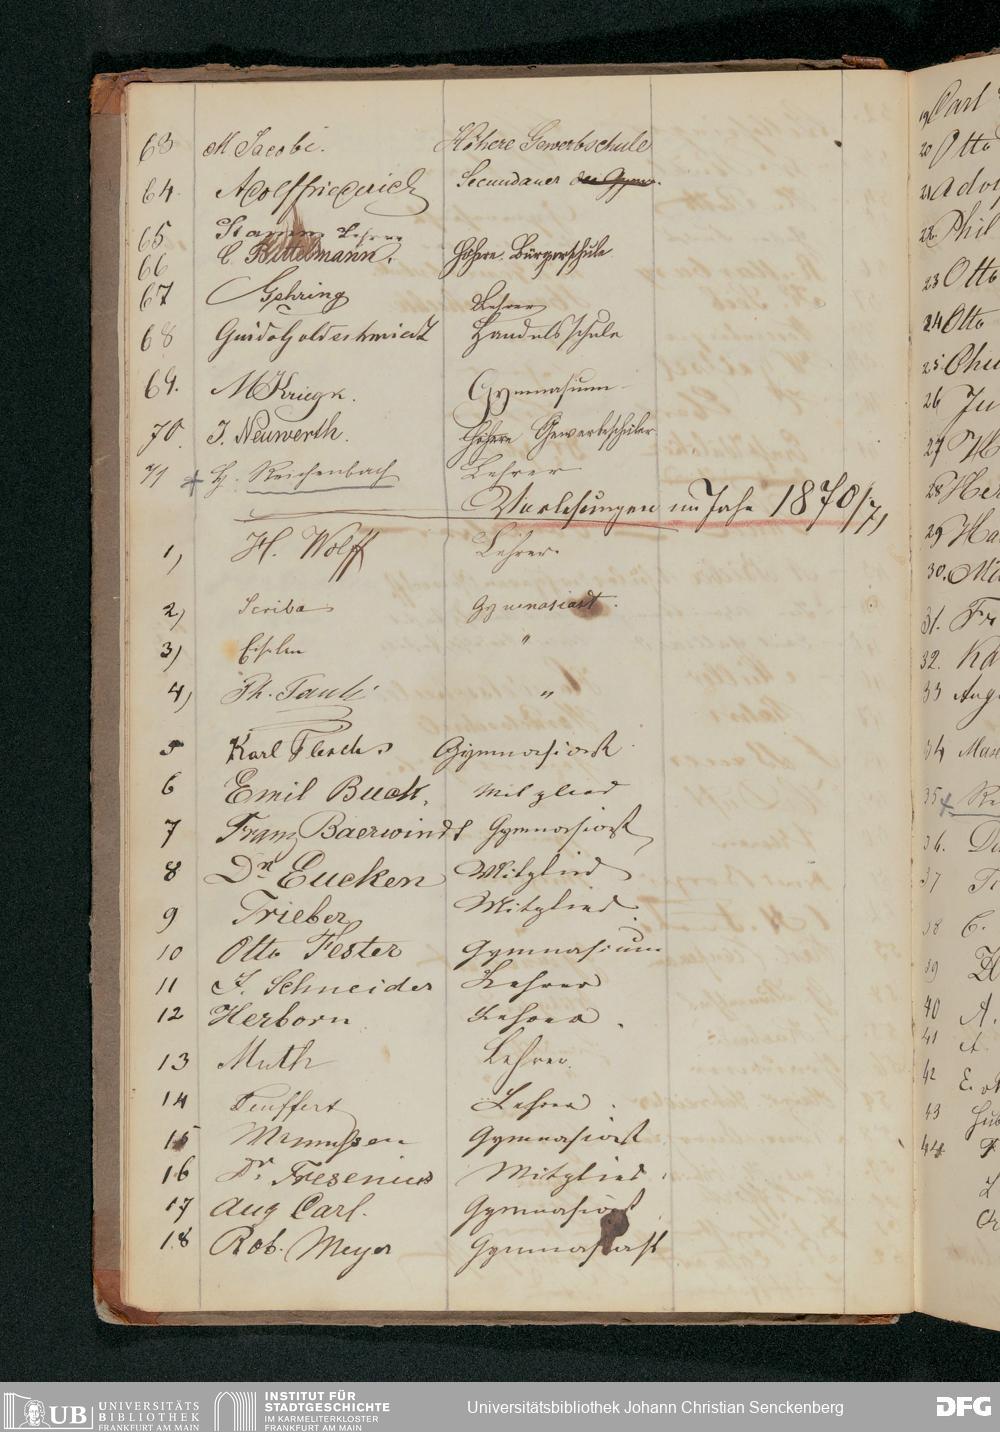 63 M Jacobi. Höhere Gewerbschule
64. Adolf Friederich Secundaner der Gymn.
65 Stamm Lehrer
66 C. Hittelmann. Höhere Bürgerschule
67 Gehring Lehrer
68 Guido Goldschmidt Handelsschule
69. M Kriegk. Gymnasium
70. J. Neuwerth. Höhere Gewerbeschüler
71 H. Reichenbach Lehrer
Vorlesungen im Jahr 1870/71
1) H. Wolff Lehrer.
2) Scriba Gymnasiast.
3) "
4) Ph. Taub "
5 Karl Flesch. Gymnasiast
6 Emil Buck. Mitglied
7 Franz Baerwindt Gymnasiast
8 Dr. Eucken Mitglied
9 Trieber Mitglied.
10 Otto Fester Gymnasium
11 J. Schneider Lehrer
12 Herborn Lehrer.
13 Muth Lehrer.
14 Teuffert Lehrer.
15 Gymnasiast
16 Dr. Fresenius Mitglied.
17 Aug Carl. Gymnasiast
18 Rob. Meyer Gymnasiast
19 Carl
20 Otto
21 Adol
22. Phil
23 Otto
24 Otto
25
26 Ju
27
28 Her
29 Ha
30.
31. Fr
32. Ka
33 Aug
34
35 Re
36.
37
38 C.
39
40 A.
41 A.
42
43
44
UB UNIVERSITÄTS
BIBLIOTHEK
FRANKFURT AM MAIN
INSTITUT FÜR
STADTGESCHICHTE
IM KARMELITERKLOSTER
FRANKFURT AM MAIN
Universitätsbibliothek Johann Christian Senckenberg
DFG